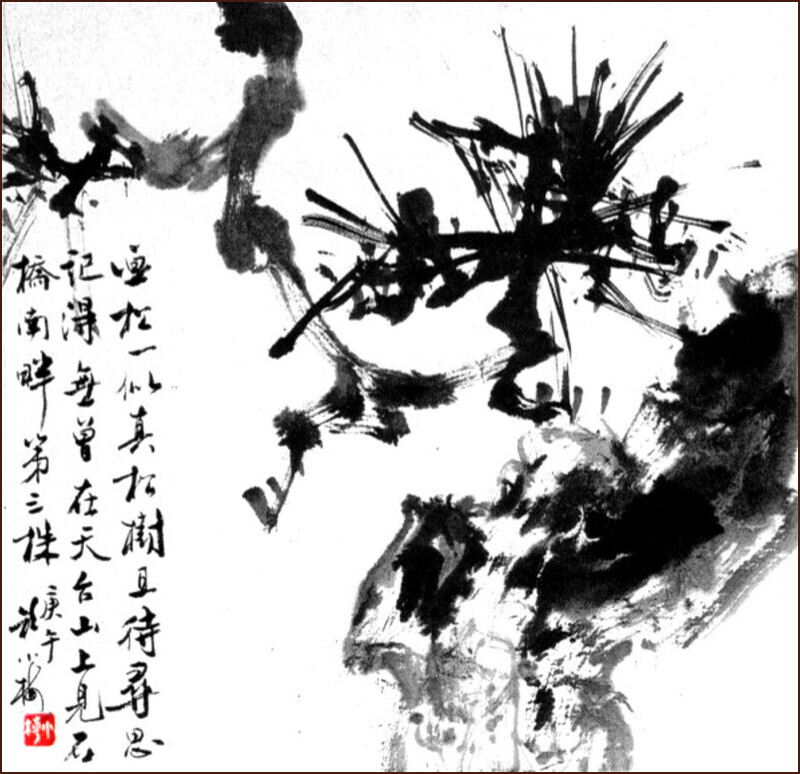 画松一似真松樹且待尋思
記得無曾在天台山上見石
橋南畔第三株
庚午